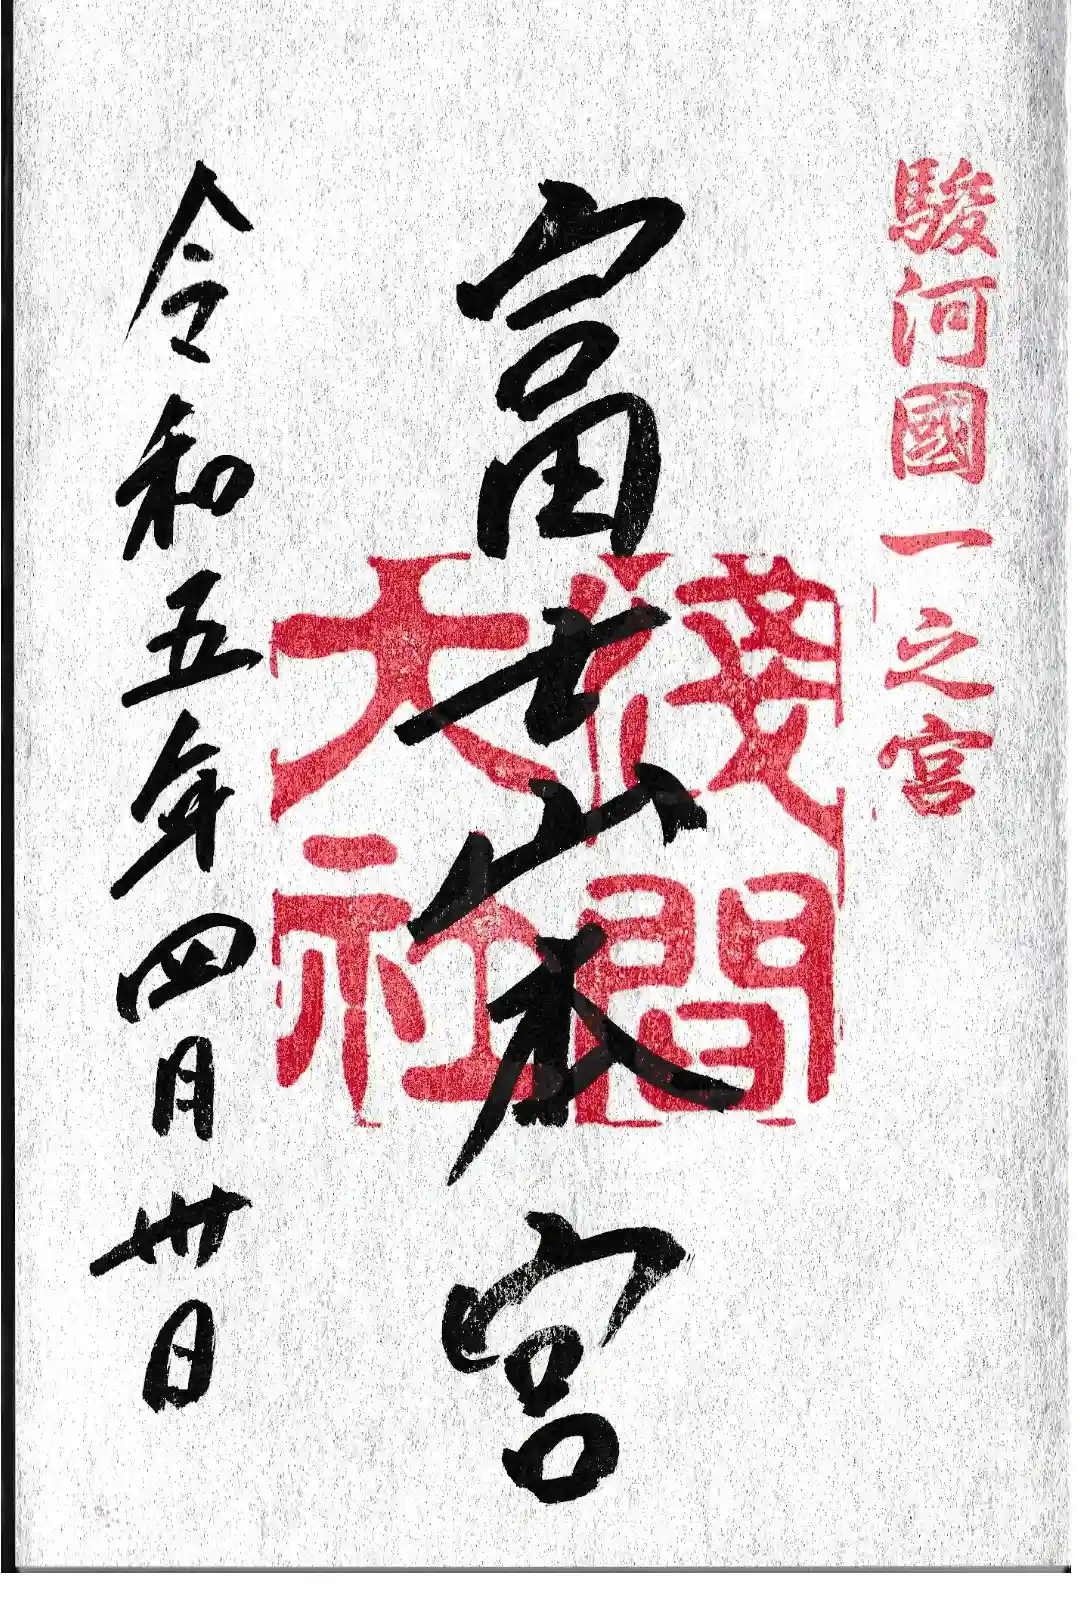 駿河國一之宮
富士山本宮
淺間大社
令和五年四月卅日